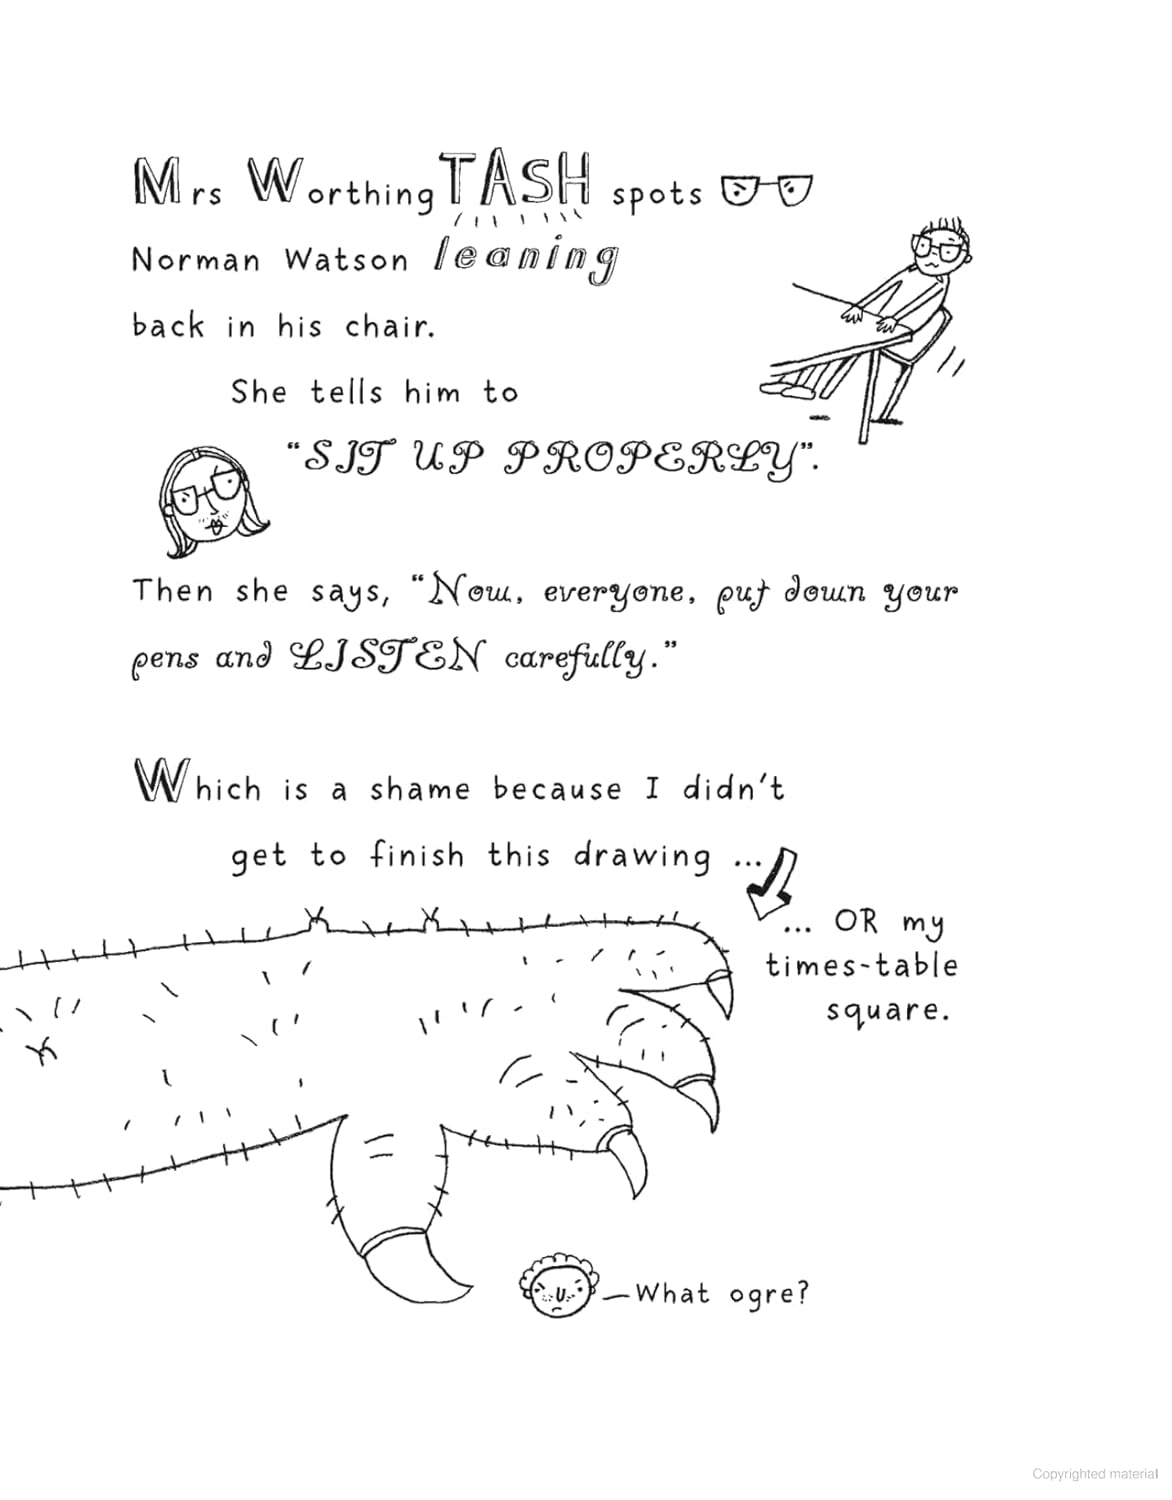 Mrs WorthingTASH spots
Norman Watson leaning
back in his chair.
She tells him to
“SIT UP PROPERLY”.
Then she says, “Now, everyone, put down your
pens and LISTEN carefully.”
Which is a shame because I didn't
get to finish this drawing ...
... OR my
times-table
square.
What ogre?
Copyrighted material